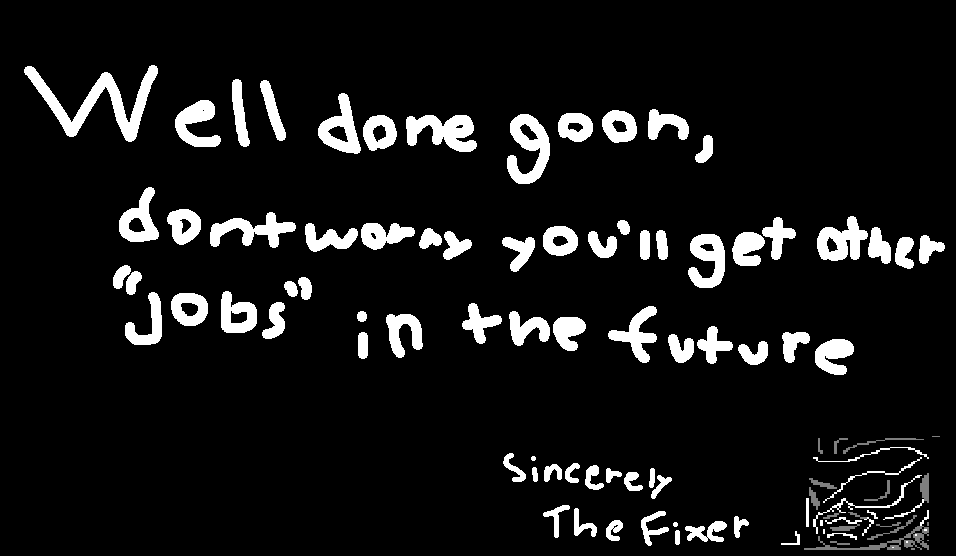 Well done goon,
dont worry you'll get other
"jobs" in the future
Sincerely
The Fixer